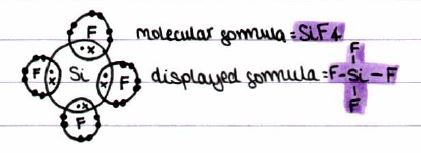 F
molecular formula = SiF4
F Si F
F
displayed formula = F-Si-F
F
F